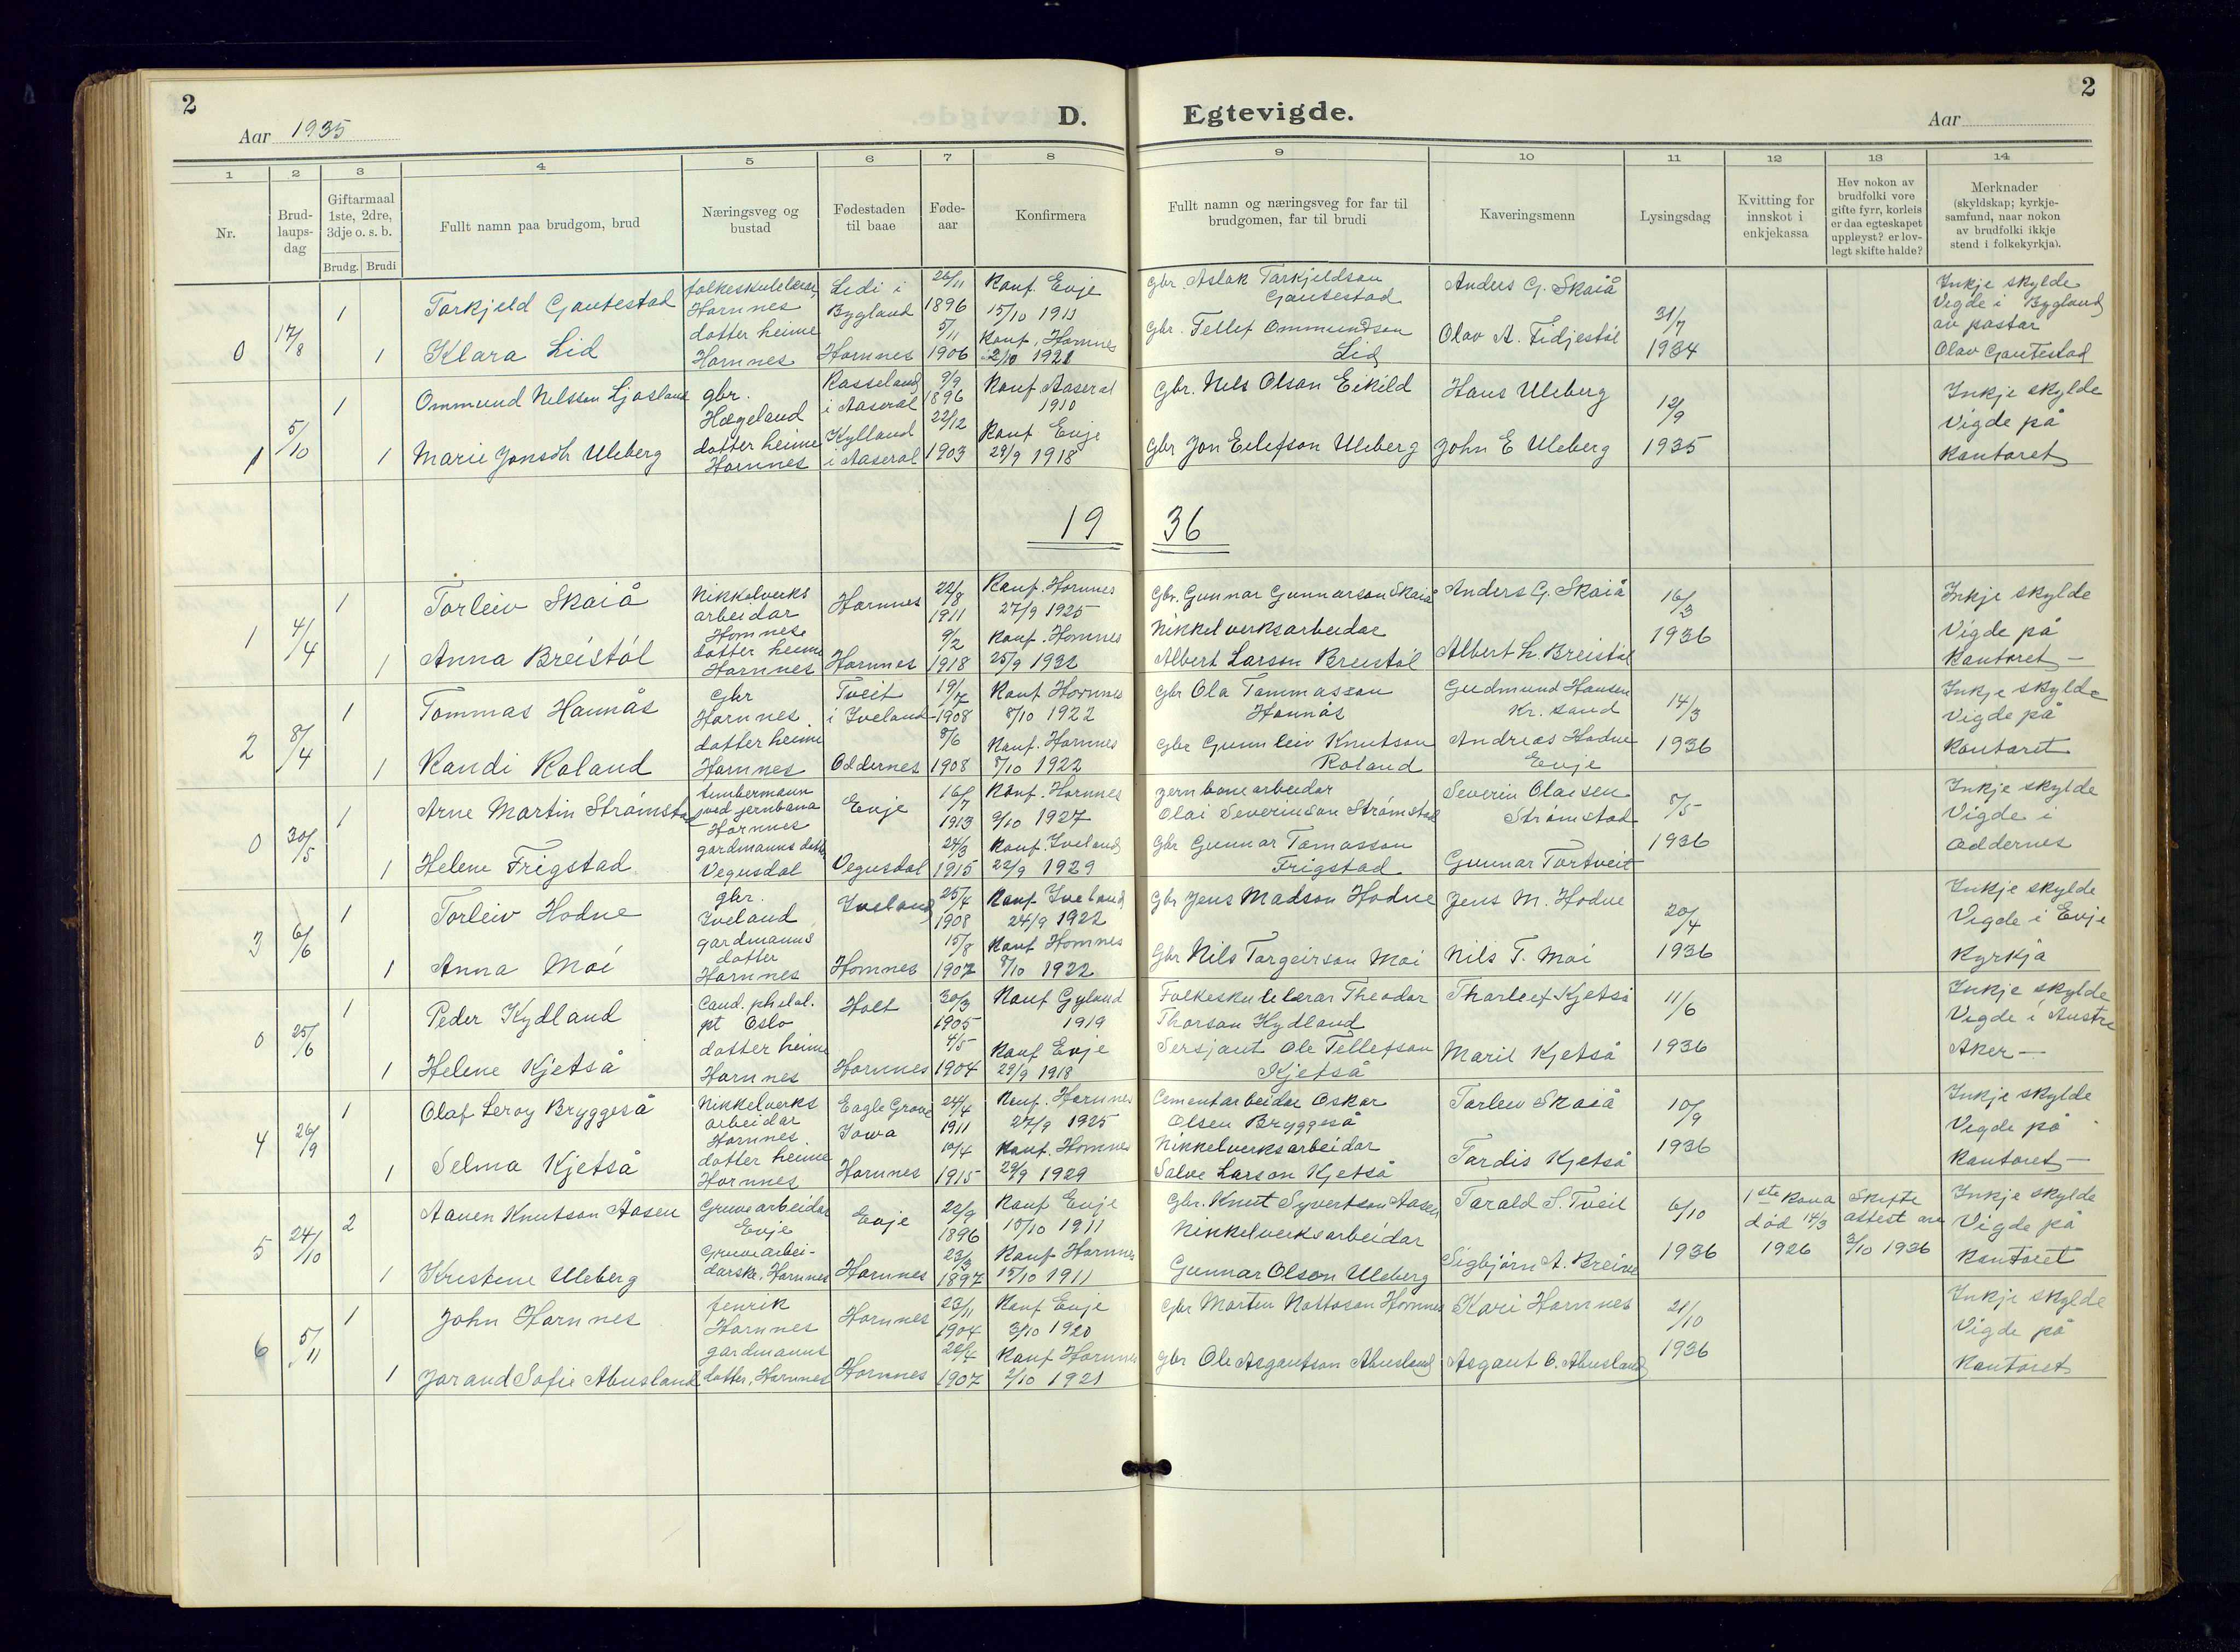 2
Aar 1935
D.
Egtevigde.
Aar
2
1 2 3 4 5 6 7 8 9 10 11 12 13 14
Nr.
Brudlaupsdag
Giftarmaal 1ste, 2dre, 3dje o. s. b.
Brudg. Brudi
Fullt namn paa brudgom, brud
Næringsveg og bustad
Fødestaden til baae
Fødeaar
Konfirmera
Fullt namn og næringsveg for far til brudgomen, far til brudi
Kaveringsmenn
Lysingsdag
Kvitting for innskot i enkjekassa
Hev nokon av brudfolki vore gifte fyrr, korleis er daa egteskapet uppløyst? er lovlegt skifte halde?
Merknader (skyldskap; kyrkjesamfund, naar nokon av brudfolki ikkje stend i folkekyrkja).
0 17/8
1 Torkjeld Gautestad folkeskulelærar, Hornnes Lidi i Bygland 26/11 1896 Konf Evje 15/10 1911 gbr. Aslak Torkjeldson Gautestad Anders G. Skaiå 31/7 1934 Inkje skylde Vigde i Bygland av pastor Olav Gautestad
1 Klara Lid dotter heime Hornnes Hornnes 5/11 1906 Konf. Hornnes 2/10 1921 gbr. Tellef Ommundson Lid Olav A. Fidjestöl
1 5/10
1 Ommund Nelsson Ljosland gbr. Hægeland Rosseland i Aaseral 9/9 1896 Konf Aaseral 1910 Gbr. Nels Olson Eikild Hans Uleberg 12/9 1935 Inkje skylde Vigde på Kontoret
1 Marie Jonsdtr Uleberg dotter heime Hornnes Kylland i Aaseral 22/12 1903 Konf Evje 29/9 1918 Gbr Jon Eilefson Uleberg John E Uleberg
19 36
1 4/4
1 Torleiv Skaiå Nikkelverks arbeidar Hornnes Hornnes 22/8 1911 Konf. Hornnes 27/9 1925 Gbr. Gunnar Gunnarson Skaiå Anders G. Skaiå 16/3 1936 Inkje skylde Vigde på Kontoret
1 Anna Breistöl dotter heime Hornnes Hornnes 9/2 1918 Konf. Hornnes 25/9 1932 Nikkelverksarbeidar Albert Larson Breistöl Albert L Breistöl
2 8/4
1 Tommas Honnås Gbr Hornnes Tveit i Iveland 19/7 1908 Konf Hornnes 8/10 1922 Gbr Ola Tommasson Honnås Gudmund Hansen Kr. sand 14/3 1936 Inkje skylde Vigde på Kontoret
1 Randi Roland dotter heime Hornnes Oddernes 8/6 1908 Konf. Hornnes 8/10 1922 Gbr Gunnleiv Knutson Roland Andreas Hodne Evje
0 30/5
1 Arne Martin Strömstad tømbermann ved jernbana Hornnes Evje 16/7 1913 Konf. Hornnes 9/10 1927 jernbanearbeidar Olai Severinson Strömstad Severin Olaisen Strömstad 8/5 1936 Inkje skylde Vigde i Oddernes
1 Helene Frigstad gardmanns dotter Vegusdal Vegusdal 24/3 1915 Konf. Iveland 22/9 1929 Gbr Gunnar Tomasson Frigstad Gunnar Tortveit
3 6/6
1 Torleiv Hodne gbr. Iveland Iveland 25/4 1908 Konf Iveland 24/9 1922 Gbr Jens Madson Hodne Jens M. Hodne 20/4 1936 Inkje skylde Vigde i Evje Kyrkja
1 Anna Moi gardmanns dotter Hornnes Hornnes 15/8 1907 Konf Hornnes 8/10 1922 Gbr Nils Torgeirson Moi Nils T. Moi
0 25/6
1 Peder Kydland Cand. philol. pt Oslo Holt 30/3 1905 Konf Gyland 1919 Folkeskulelærar Theodor Thorson Kydland Thorleif Kjetså 11/6 1936 Inkje skylde Vigde i Austre Aker
1 Helene Kjetså dotter heime Hornnes Hornnes 4/5 1904 Konf Evje 29/9 1918 Sersjant Ole Tellefson Kjetså Marie Kjetså
4 26/9
1 Olaf Leroy Bryggeså Nikkelverks arbeidar Hornnes. Eagle Grove Iowa 24/4 1911 Konf. Hornnes 27/9 1925 Cementarbeidar Oskar Olsen Bryggeså Torleiv Skaiå 10/9 1936 Inkje skylde Vigde på Kontoret
1 Selma Kjetså dotter heime Hornnes Hornnes 10/4 1915 Konf. Hornnes 29/9 1929 Nikkelverksarbeidar Salve Larson Kjetså Tordis Kjetså
5 24/10
2 Aanen Knutson Aasen Gruvearbeidar Evje Evje 22/9 1896 Konf Evje 15/10 1911 Gbr. Knut Syvertson Aasen Torald S. Tveit 6/10 1936 1ste kona död 14/3 1926 Skifte attest av 3/10 1936 Inkje skylde Vigde på Kontoret
1 Kristene Uleberg Gruvearbeidarske, Hornnes Hornnes 23/3 1897 Konf Hornnes 15/10 1911 Nikkelverksarbeidar Gunnar Olson Uleberg Sigbjörn A. Breive
6 5/11
1 John Hornnes fenrik Hornnes Hornnes 23/11 1904 Konf Evje 3/10 1920 Gbr Morten Nottoson Hornnes Kari Hornnes 21/10 1936 Inkje skylde Vigde på Kontoret
1 Jorand Sofie Abusland gardmanns dotter, Hornnes Hornnes 22/4 1907 Konf Hornnes 2/10 1921 Gbr Ole Asgautson Abusland Asgaut O. Abusland